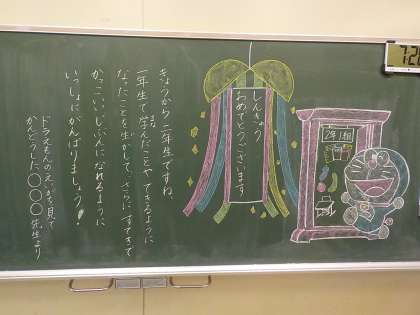 2年1組
しんきゅう
おめでとうございます
きょうから二年生ですね。
一年生で学んだことや できるように
なったことを生かして、さらに、すてきで
かっこいいじぶんになれるように
いっしょにがんばりましょう!
ドラえもんのえいがを見て
かんどうした〇〇〇先生より